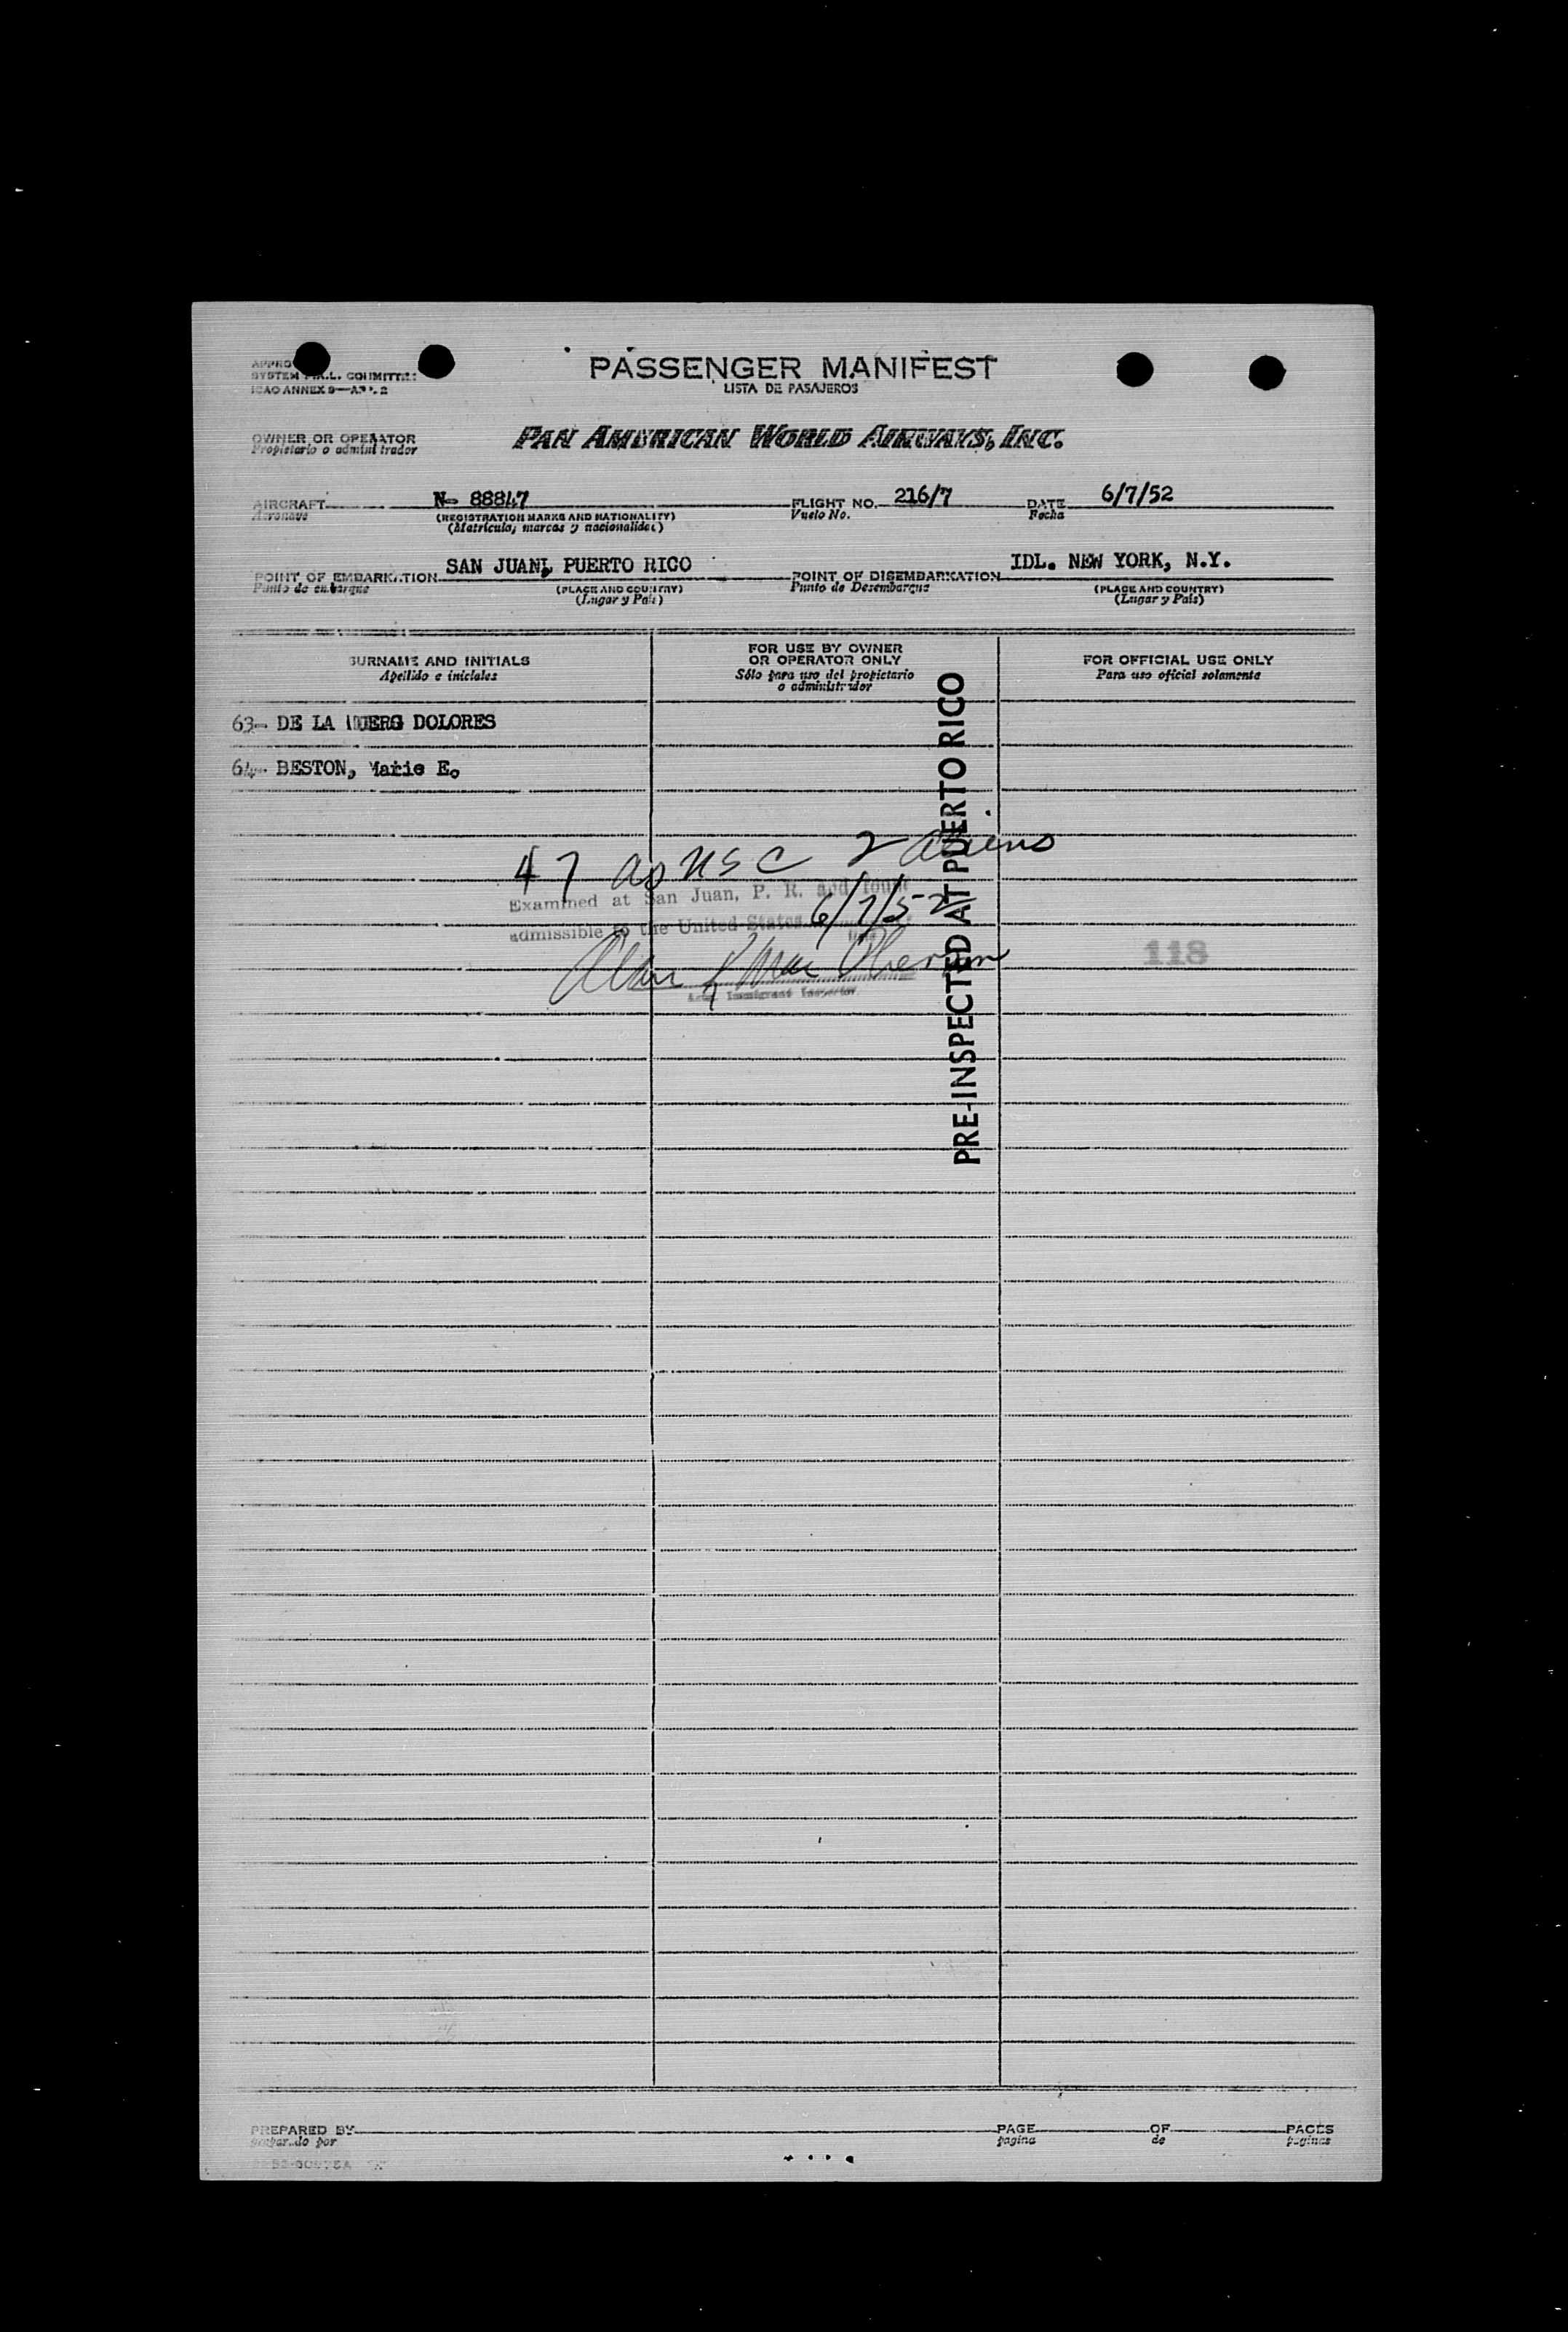 PASSENGER MANIFEST
LISTA DE PASAJEROS
SYSTEM COMMITTEE
ICAO ANNEX 9—APP. 2
OWNER OR OPERATOR
Propietario o administrador
PAN AMERICAN WORLD AIRWAYS, INC.
AIRCRAFT N- 88847 FLIGHT NO. 216/7 DATE 6/7/52
Aeronave (REGISTRATION MARKS AND NATIONALITY) Vuelo No. Fecha
(Matricula, marcas y nacionalidad)
POINT OF EMBARKATION SAN JUAN, PUERTO RICO POINT OF DISEMBARKATION IDL. NEW YORK, N.Y.
Punto de embarque (PLACE AND COUNTRY) Punto de Desembarque (PLACE AND COUNTRY)
(Lugar y País) (Lugar y País)
SURNAME AND INITIALS
Apellido e iniciales
FOR USE BY OWNER
OR OPERATOR ONLY
Sólo para uso del propietario
o administrador
FOR OFFICIAL USE ONLY
Para uso oficial solamente
63- DE LA DOLORES
64- BESTON, Marie E.
47 as USC 2 aliens
Examined at San Juan, P. R. and found
admissible to the United States 6/7/52
Immigrant Inspector
118
PRE-INSPECTED AT PUERTO RICO
PREPARED BY PAGE OF PAGES
preparado por pagina de paginas